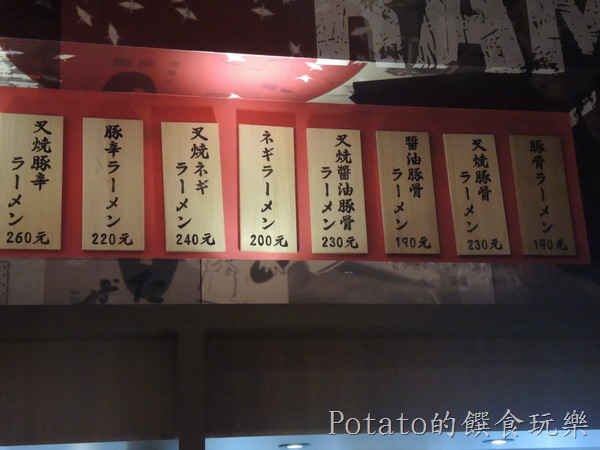 RAM
豚骨ラーメン
190元
叉焼豚骨
ラーメン
230元
醬油豚骨
ラーメン
190元
叉焼醬油豚骨
ラーメン
230元
ネギラーメン
200元
叉焼ネギ
ラーメン
240元
豚辛ラーメン
220元
叉焼豚辛
ラーメン
260元
Potato的饌食玩樂